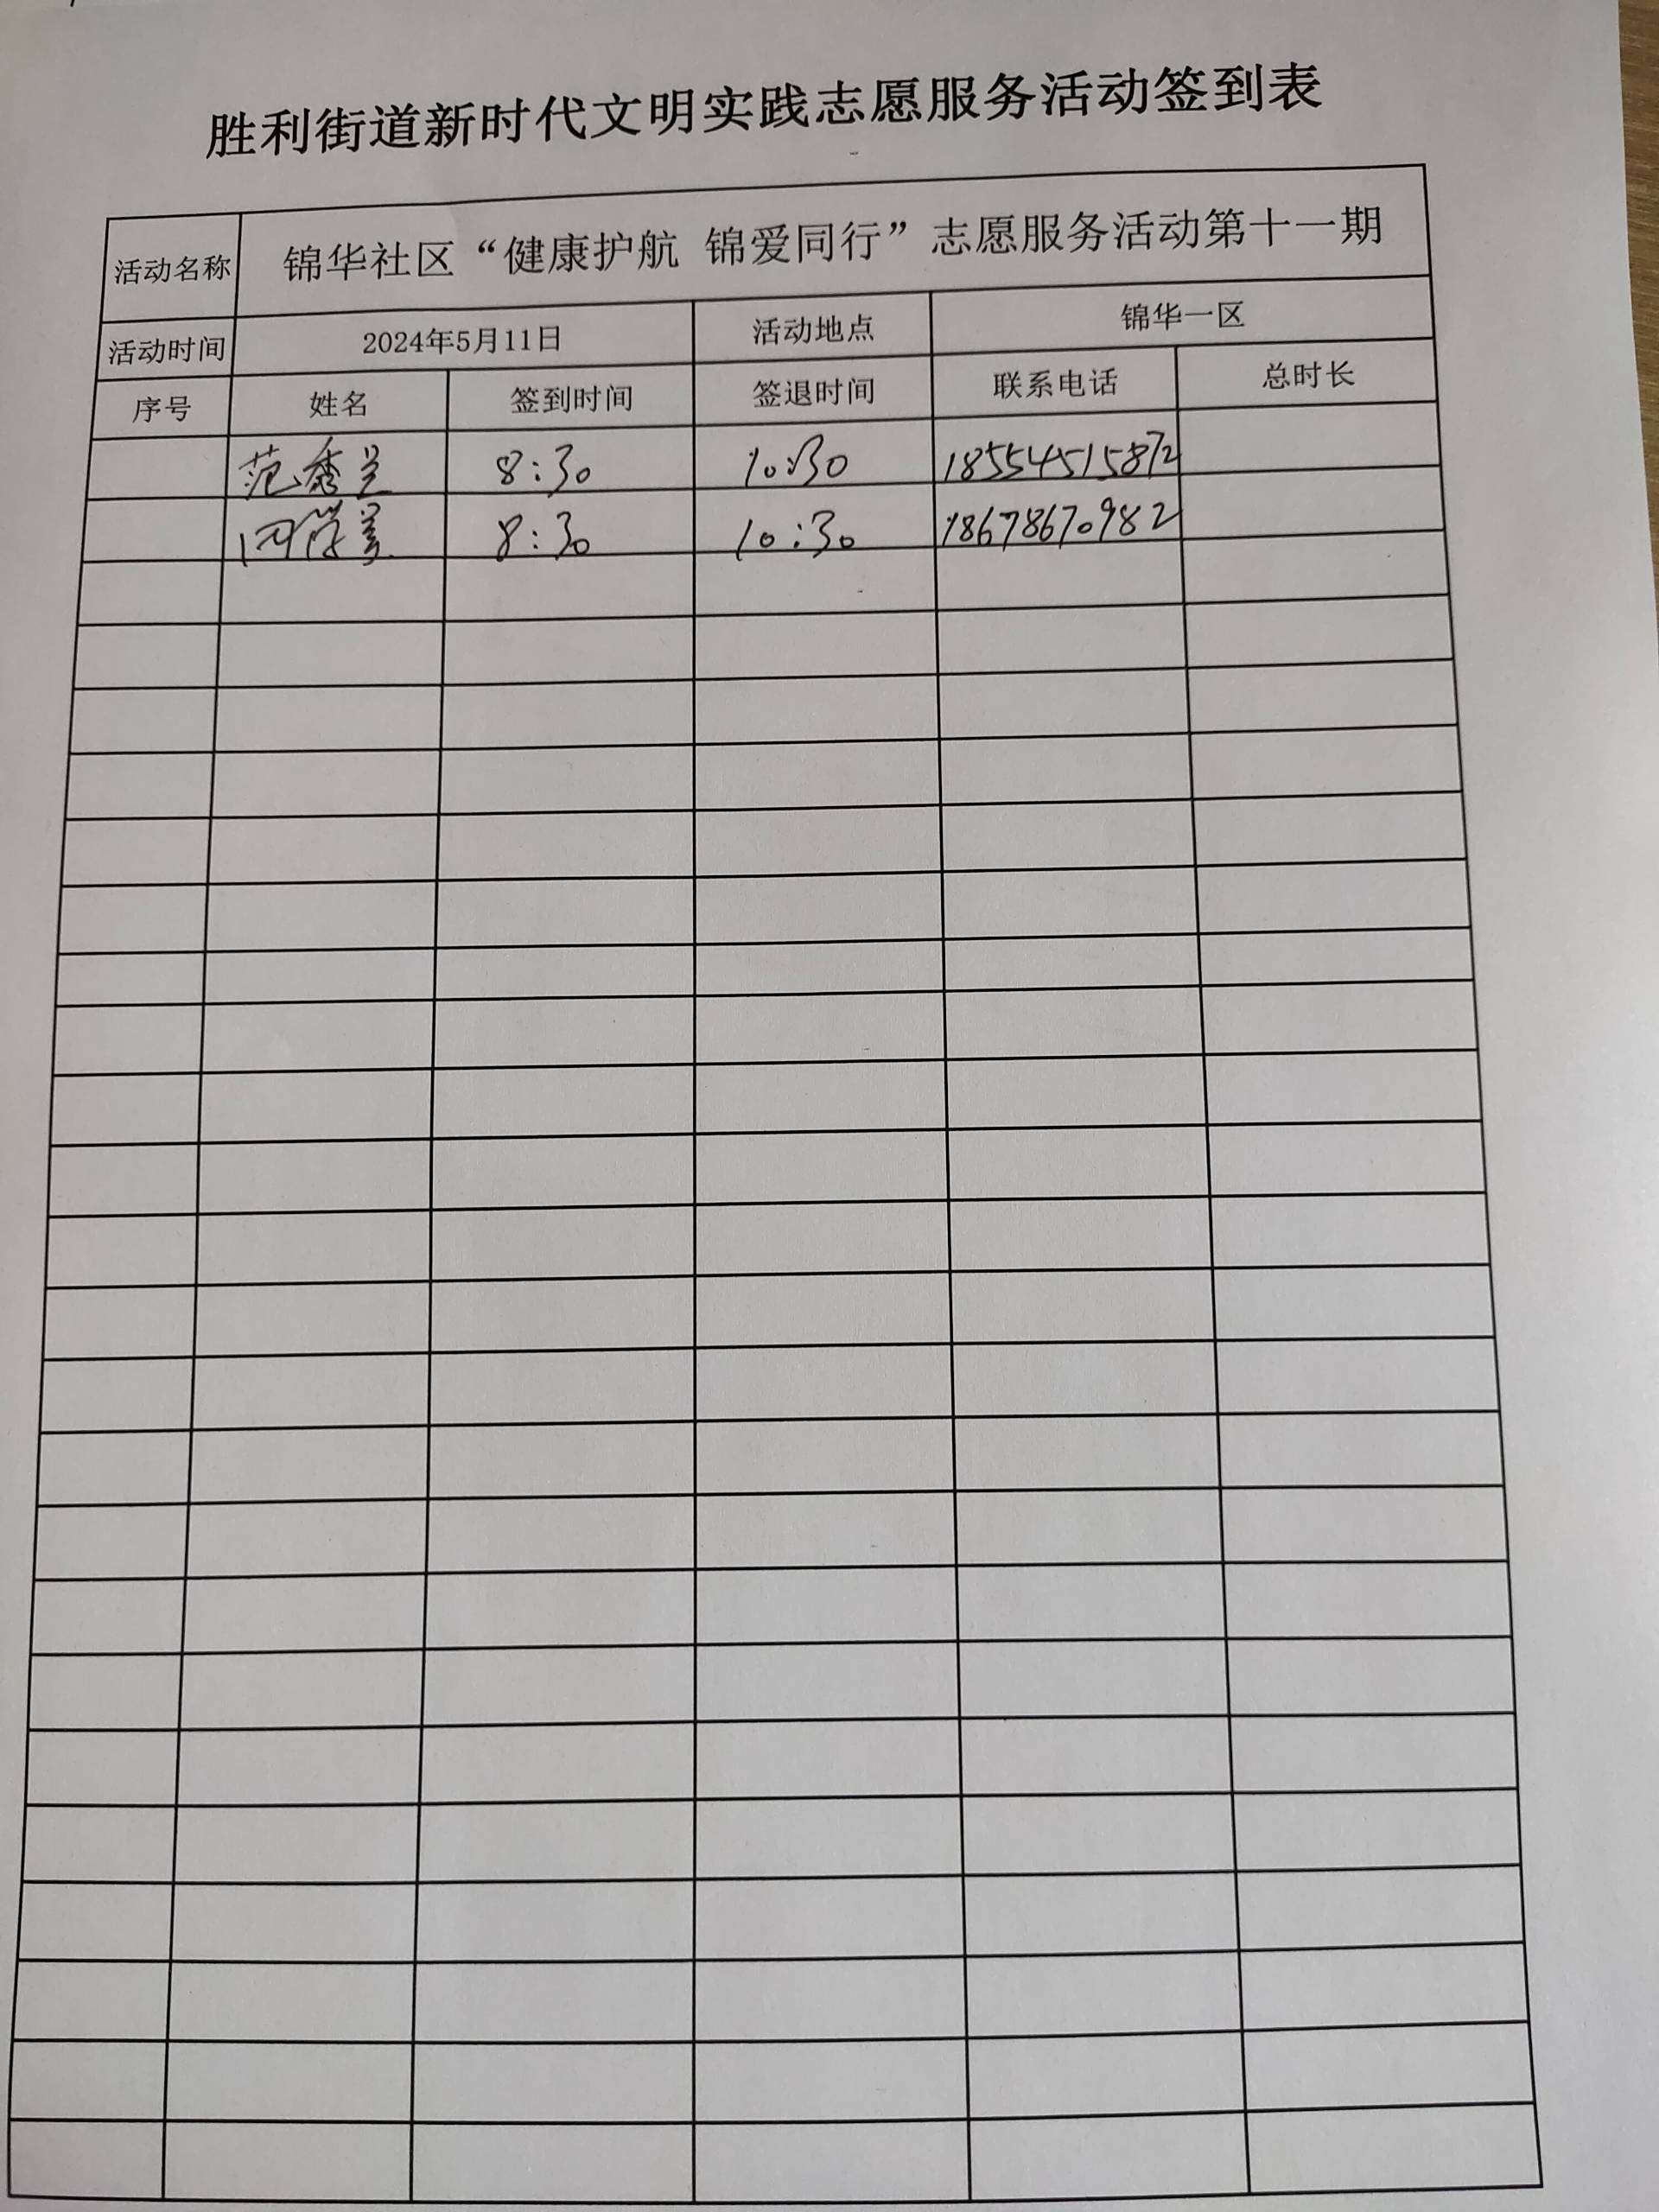 胜利街道新时代文明实践志愿服务活动签到表
活动名称 锦华社区“健康护航 锦爱同行”志愿服务活动第十一期
活动时间 2024年5月11日 活动地点 锦华一区
序号 姓名 签到时间 签退时间 联系电话 总时长
范秀兰 8:30 10:30 18554515872
8:30 10:30 18678670982